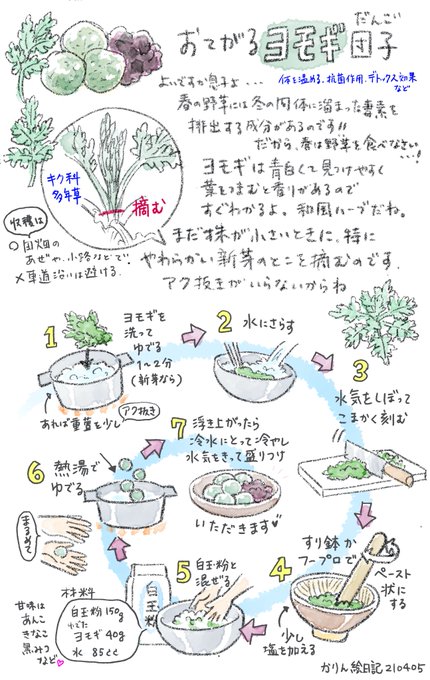 おてがるヨモギ団子
だんご
よいですか息子よ・・・
体を温める、抗菌作用、デトックス効果
など
春の野草には冬の間体に溜まった毒素を
排出する成分があるのです!!
だから、春は野草を食べなさい
・・・!
ヨモギは青白くて見つけやすく
葉をつまむと香りがあるので
すぐわかるよ。和風ハーブだね。
まだ株が小さいときに、特に
やわらかい新芽のとこを摘むのです.
アク抜きがいらないからね
キク科
多年草
摘む
収穫は
○田畑の
あぜや、小路などで。
×車道沿いは避ける.
1
ヨモギを
洗って
ゆでる
1〜2分
(新芽なら)
あれば重曹を少し
アク抜き
2 水にさらす
3
水気をしぼって
こまかく刻む
4
すり鉢か
フープロで
ペースト
状にする
少し
塩を加える
5 白玉粉と
混ぜる
白玉粉
材料
白玉粉150g
ゆでた
ヨモギ40g
水 85cc
まるめて
6 熱湯で
ゆでる
7 浮き上がったら
冷水にとって冷やし
水気をきって盛りつけ
いただきます♥
甘味は
あんこ
きなこ
黒みつ
など♥
かりん絵日記210405